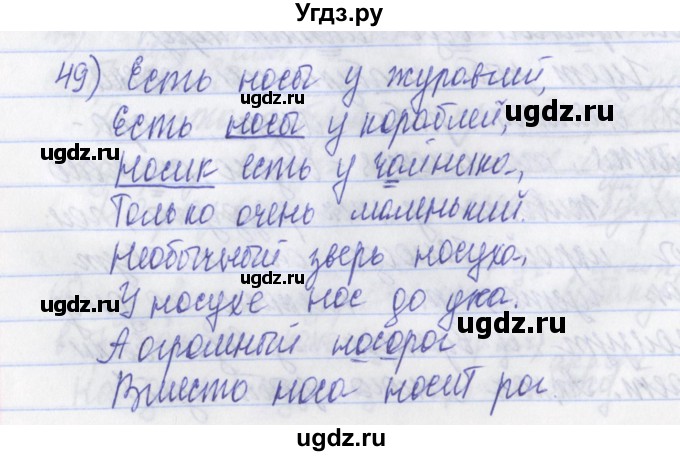 Угдз.ру
49) Есть носы у журавлей,
Есть носы у кораблей,
Носик есть у чайника,
Только очень маленький.
Необычный зверь носуха,
У носухе нос до уха.
А огромный носорог
Вместо носа носит рог.
ugdz.ru
ugdz.ru
ugdz.ru
ugdz.ru
ugdz.ru
ugdz.ru
ugdz.ru
ugdz.ru
ugdz.ru